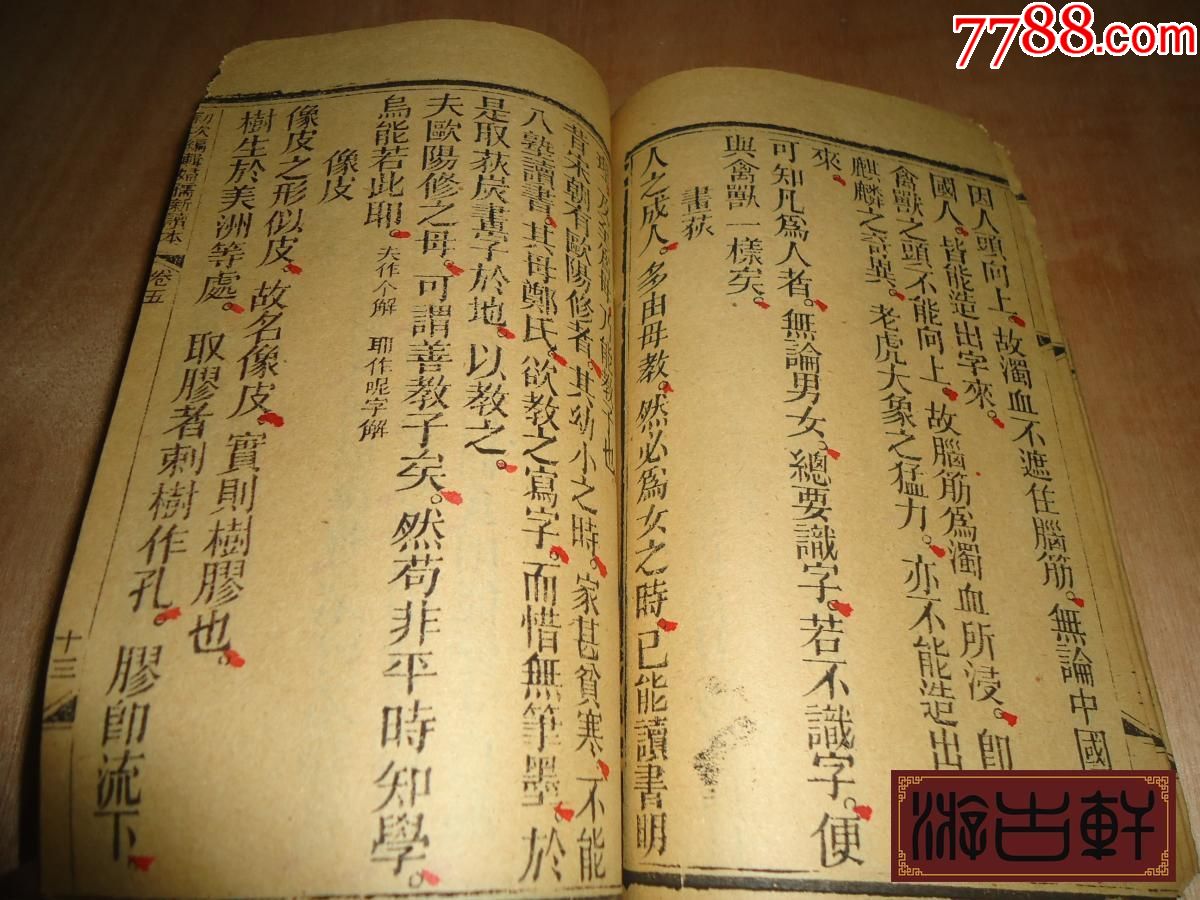 7788.com
因人頭向上。故濁血不遮住腦筋。無論中國
國人。皆能造出字來。
禽獸之頭不能向上。故腦筋為濁血所浸。即
麒麟之奇異。老虎大象之猛力。亦不能造出
來。
可知凡爲人者。無論男女。總要識字。若不識字。便
與禽獸一樣矣。
畫荻
人之成人。多由母教。然必爲女之時。已能讀書明
昔宋朝有歐陽修者。其幼小之時。家甚貧寒。不能
入塾讀書。其母鄭氏。欲教之寫字。而惜無筆墨。於
是取荻炭畫字於地。以教之。
夫歐陽修之母。可謂善教子矣。然苟非平時知學。
烏能若此耶。夫作个解 耶作呢字解
像皮
像皮之形似皮。故名像皮。實則樹膠也。
樹生於美洲等處。取膠者刺樹作孔。膠即流下
編輯婦孺新讀本 卷五 十三
游古軒